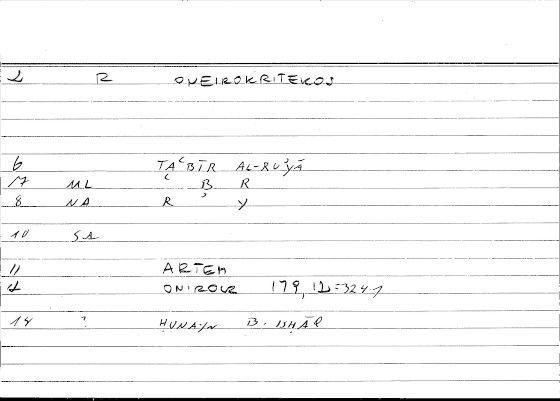 2 R ONEIROKRITEKOS
6 TAʿBĪR AL-RUʾYĀ
17 ML ʿ B R
8 NA R ʾ Y
10 SA
11 ARTEM
12 ONIROKR 179, 12=324.1
14 ? ḤUNAIN B. ISḤĀQ